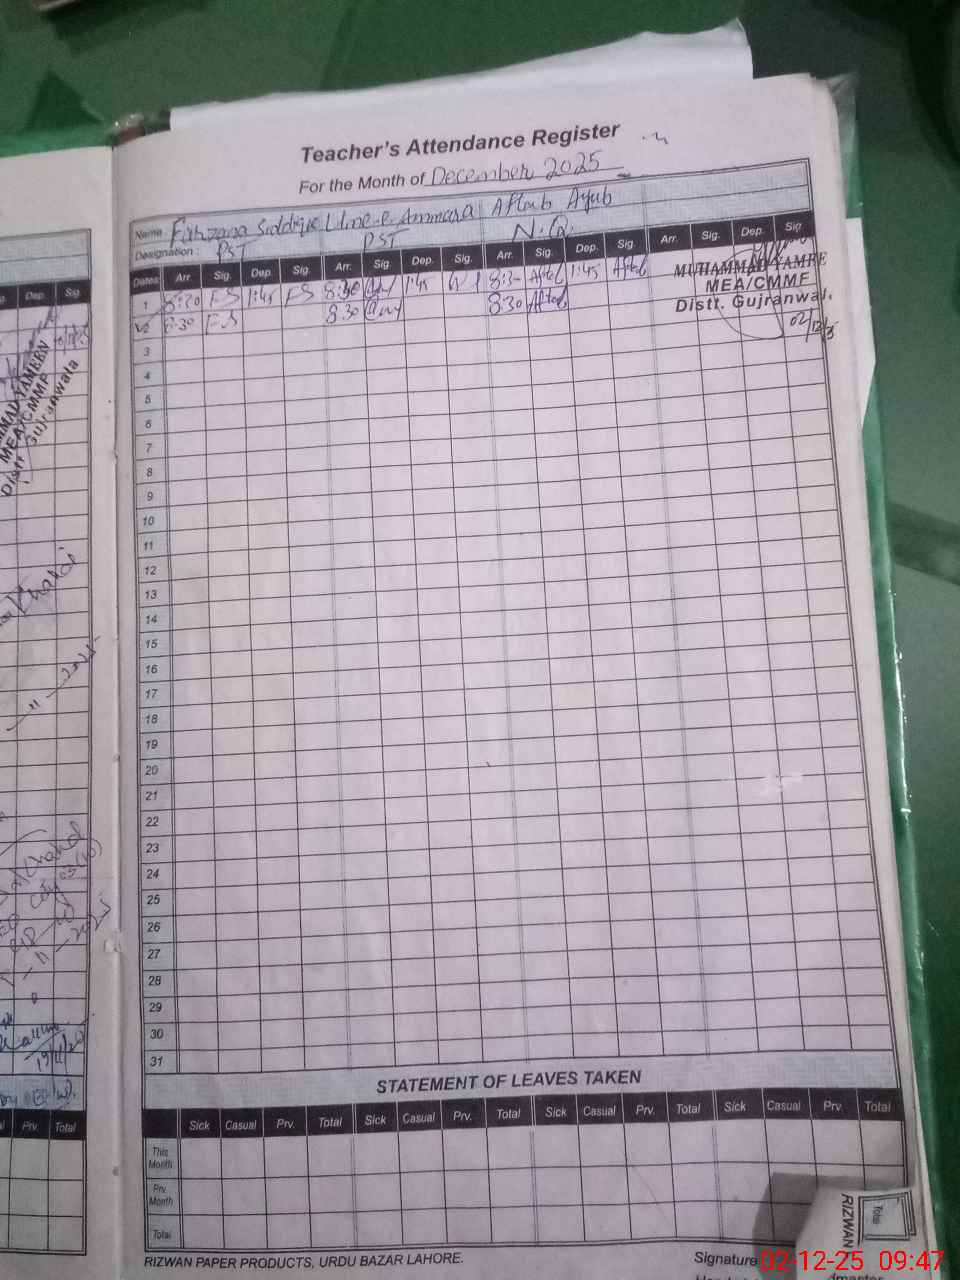 Teacher's Attendance Register
For the Month of December 2025
Name Farzana Siddique Umme Ammara Aftab Ayub
Designation: PST PST N.Q.
Dates Arr. Sig. Dep. Sig. Arr. Sig. Dep. Sig. Arr. Sig. Dep. Sig. Arr. Sig. Dep. Sig.
1 8:30 FS 1:45 FS 8:30 1:45 8:30 Aftab 1:45 Aftab
2 8:30 FS 8:30 8:30 Aftab
MUHAMMAD YAMEE
MEA/CMMF
Distt. Gujranwal.
02/12/25
3
4
5
6
7
8
9
10
11
12
13
14
15
16
17
18
19
20
21
22
23
24
25
26
27
28
29
30
31
STATEMENT OF LEAVES TAKEN
Sick Casual Prv. Total Sick Casual Prv. Total Sick Casual Prv. Total Sick Casual Prv. Total
This Month
Prv. Month
Total
RIZWAN PAPER PRODUCTS, URDU BAZAR LAHORE.
Signature
Dep. Sig.
MEA/CMMF
Distt. Gujranwala
19/11/25
Prv. Total
RIZWAN
Total
02-12-25 09:47